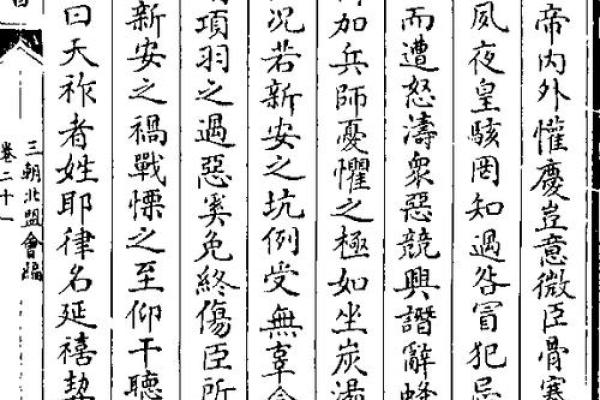 帝内外懽慶豈意微臣骨寒
夙夜皇駭罔知過咎冐犯忌
而遭怒濤衆惡競興譖辭蜂
加兵師憂懼之極如坐炭湯
况若新安之坑例受無辜
項羽之過惡奚免終傷臣所
新安之禍戰慄之至仰干聽
曰天祚者姓耶律名延禧
三朝北盟會編
卷二十一